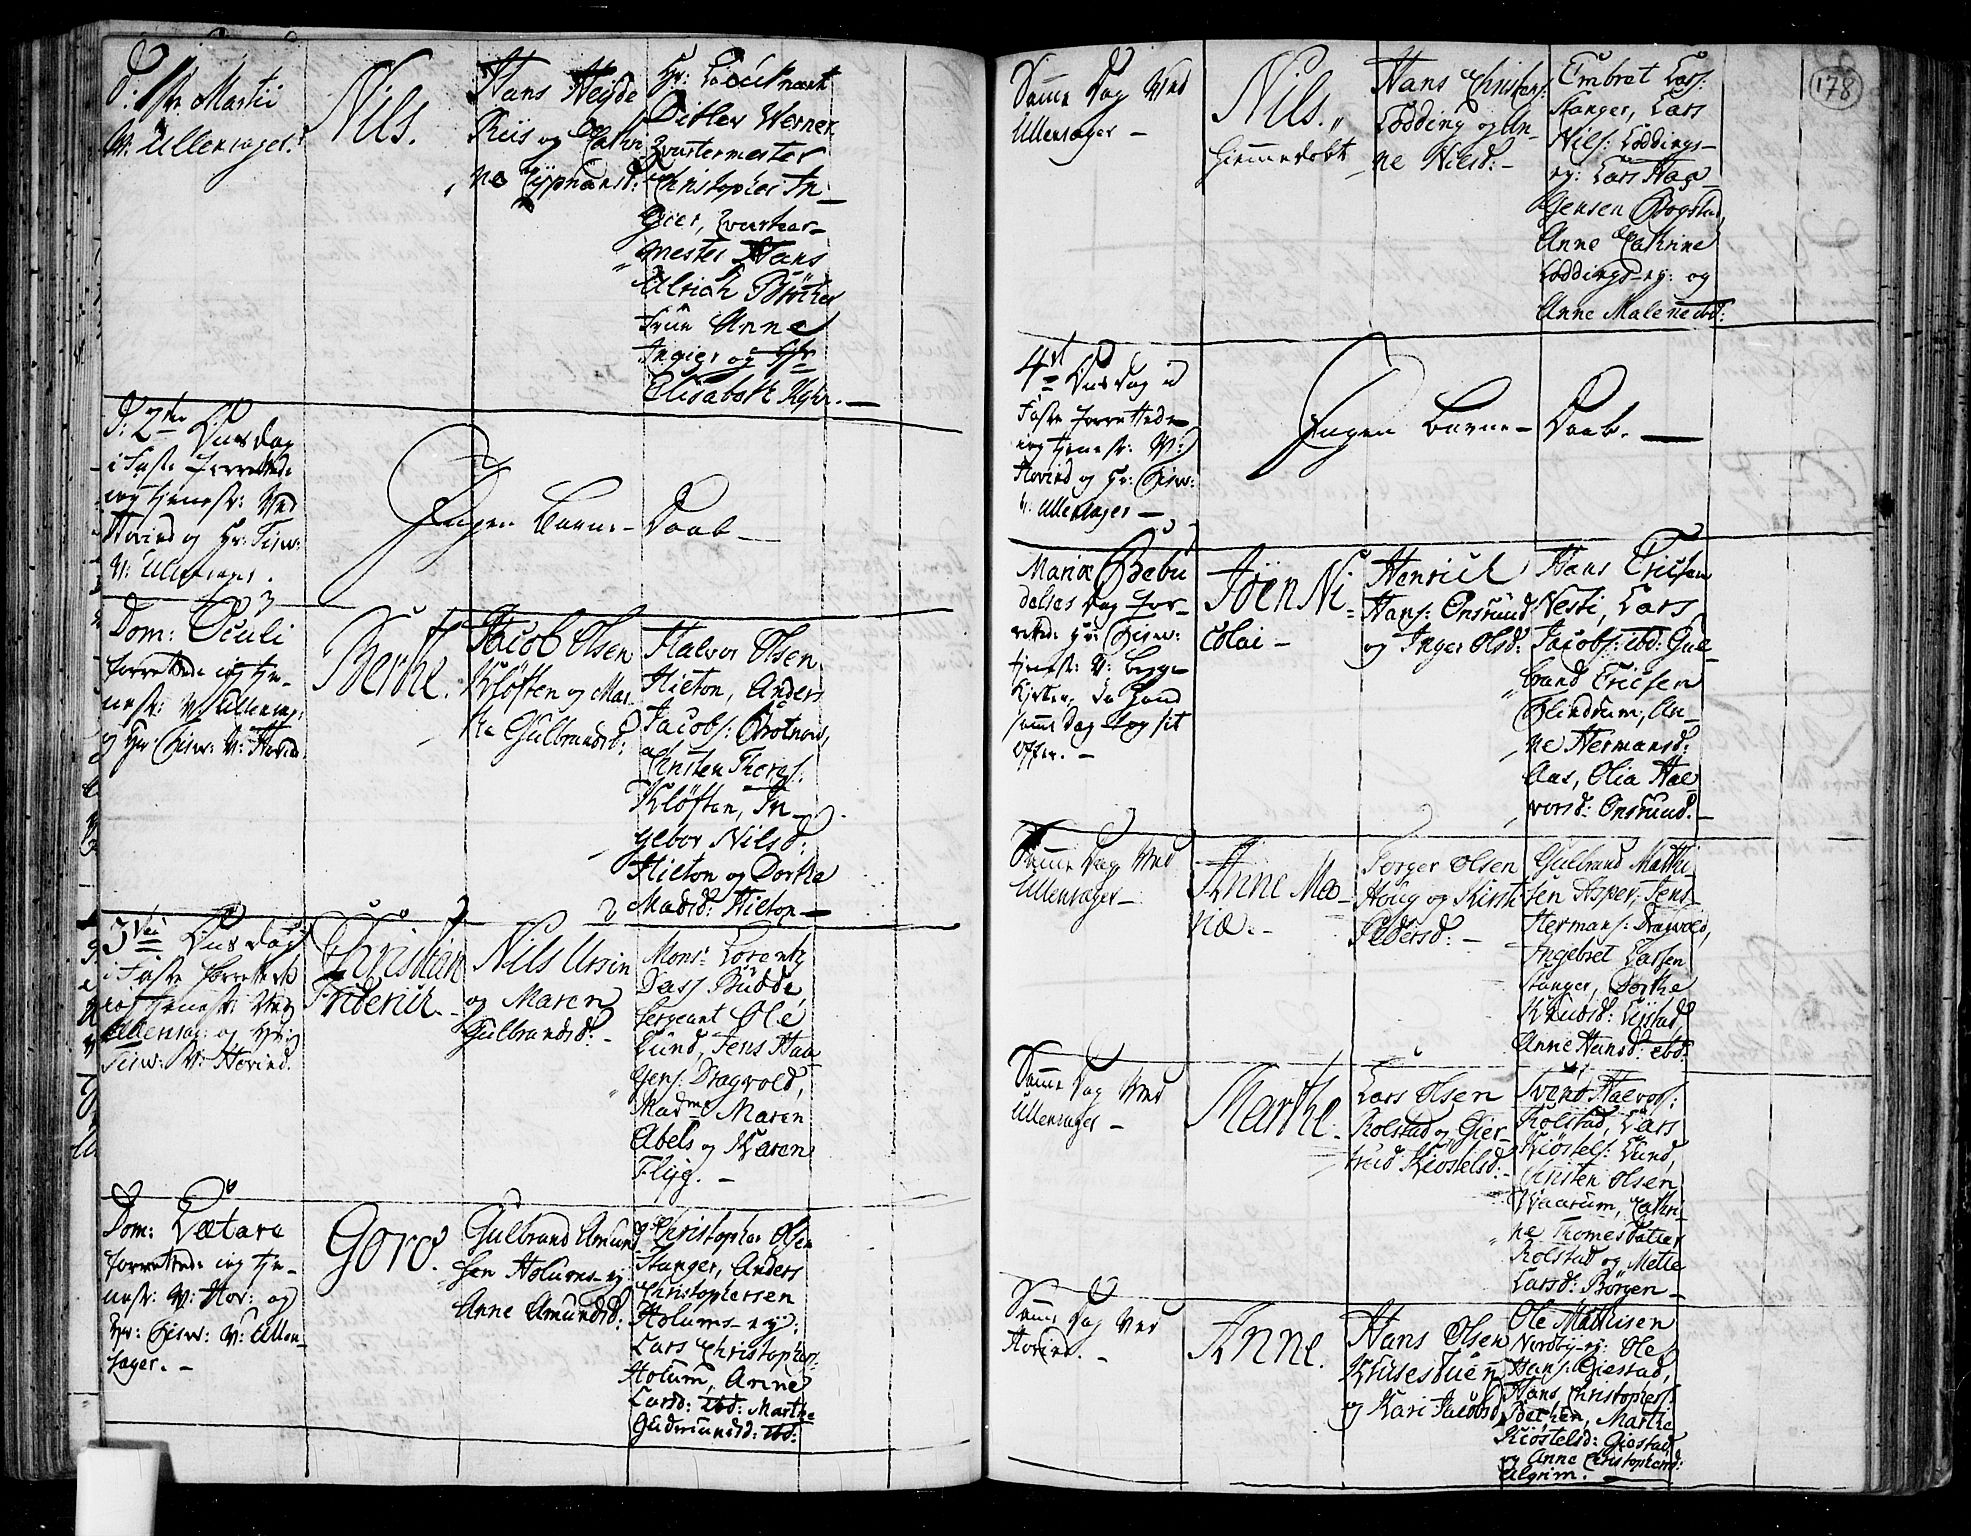 d: 1ste Martii
V: Ullensager.
Nils.
Hans Heyde
Riis og Cathri
ne Cypriansd:
Hr: Lieutnant
Ditlev Werner,
Qvartermester
Christopher In-
gier, Qvarteer-
mester Hans
Ulrich
Frue Anne
Ingier og Jfr
Elisabeth
d: 2den Onsdag
i Faste forrettede
ieg tienest: Ved
Hovind og Hr:
V: Ullensager.
Ingen Barne- Daab
Dom: Oculi
forrettede ieg tie-
nest: V: Ullensag:
og Hr: V: Hovind
Berthe.
Jacob Olsen
Kløften og Mar-
the Gulbrandsd:
Halvor Olsen
Hieton, Anders
Jacobs: Brotnov,
Christen Thorgs:
Kløften, In-
gebor Nilsd:
Hieton og Dorthe
Madsd: Hieton
3die Onsdag
i Faste forrettede
ieg tienest: Ved
Ullensag: og Hr:
V: Hovind.
Christian
Friderich
Nils Ursin
og Maren
Gulbrandsd:
Mons: Lorentz
Dass Budde,
Sergeant Ole
Lund, Jens Haa-
gens: Dragvold,
Madme Maren
Abels og Karen
Flyg.
Dom: Lætare
forrettede ieg tie-
nest: V: Hov: og
Hr: V: Ullen-
sager.
Goro.
Gulbrand Amund
sen Holums-ey:
Anne Amundsd:
Christopher Olsen
Stanger, Anders
Christophersen
Holums-ey:
Lars Christophers:
Holum, Anne
Larsd: ibd: Marthe
Gudmundsd: ibd:
178
Samme Dag Ved
Ullensager
Nils.
hiemmedøbt
Hans Christens:
Lodding og An-
ne Nilsd:
Embret Lars:
Stanger, Lars
Nils: Loddings-
ey: Lars Haa-
gensen Bogstad,
Anne Cathrine
Loddings-ey: og
Anne Malene ibd:
4de Onsdag i
Faste forrettede
ieg tienest: V:
Hovind og Hr:
V: Ullensager
Ingen Barne- Daab.
Mariæ Bebu
delses Dag for-
rettede Hr:
tienest: V: begge
Kirker, da Hand
samme Dag tog sit
Offer.
Joen Ni-
colai
Henrich
Hans: Onsrud
og Inger Olsd:
Hans Ericsen
Nesti, Lars
Jacobs: ibd: Gul-
brand Ericsen
Flindrum, An-
ne Hermansd:
Aas, Olia Hal-
vorsd: Onsrud.
Samme Dag Ved
Ullensager
Anne Ma-
riæ.
Torger Olsen
Houg og Kirsti
Pedersd:
Gulbrand Matthi
sen Asper, Jens
Hermans: Dragvold,
Ingebret Larsen
Stanger, Dorthe
Knudsd: Leistad,
Anne Hansd: ibd:
Samme Dag Ved
Ullensager
Marthe.
Lars Olsen
Rolstad og Gier-
trud Kiøstelsd:
Svend Halvors:
Rolstad, Lars
Kiøstels: Lund,
Christen Olsen
Waarum, Cathri-
ne Thomesdatter
Rolstad og Mette
Larsd: Borgen
Samme Dag Ved
Hovind.
Anne.
Hans Olsen
Krusesduen
og Kari Jacobsd
Ole Mathisen
Nordby-ey: Ole
Hans: Giestad,
Hans Christophers:
Marthe
Kiøstelsd: Giestad
og Anne Christophersd:
Algrim.